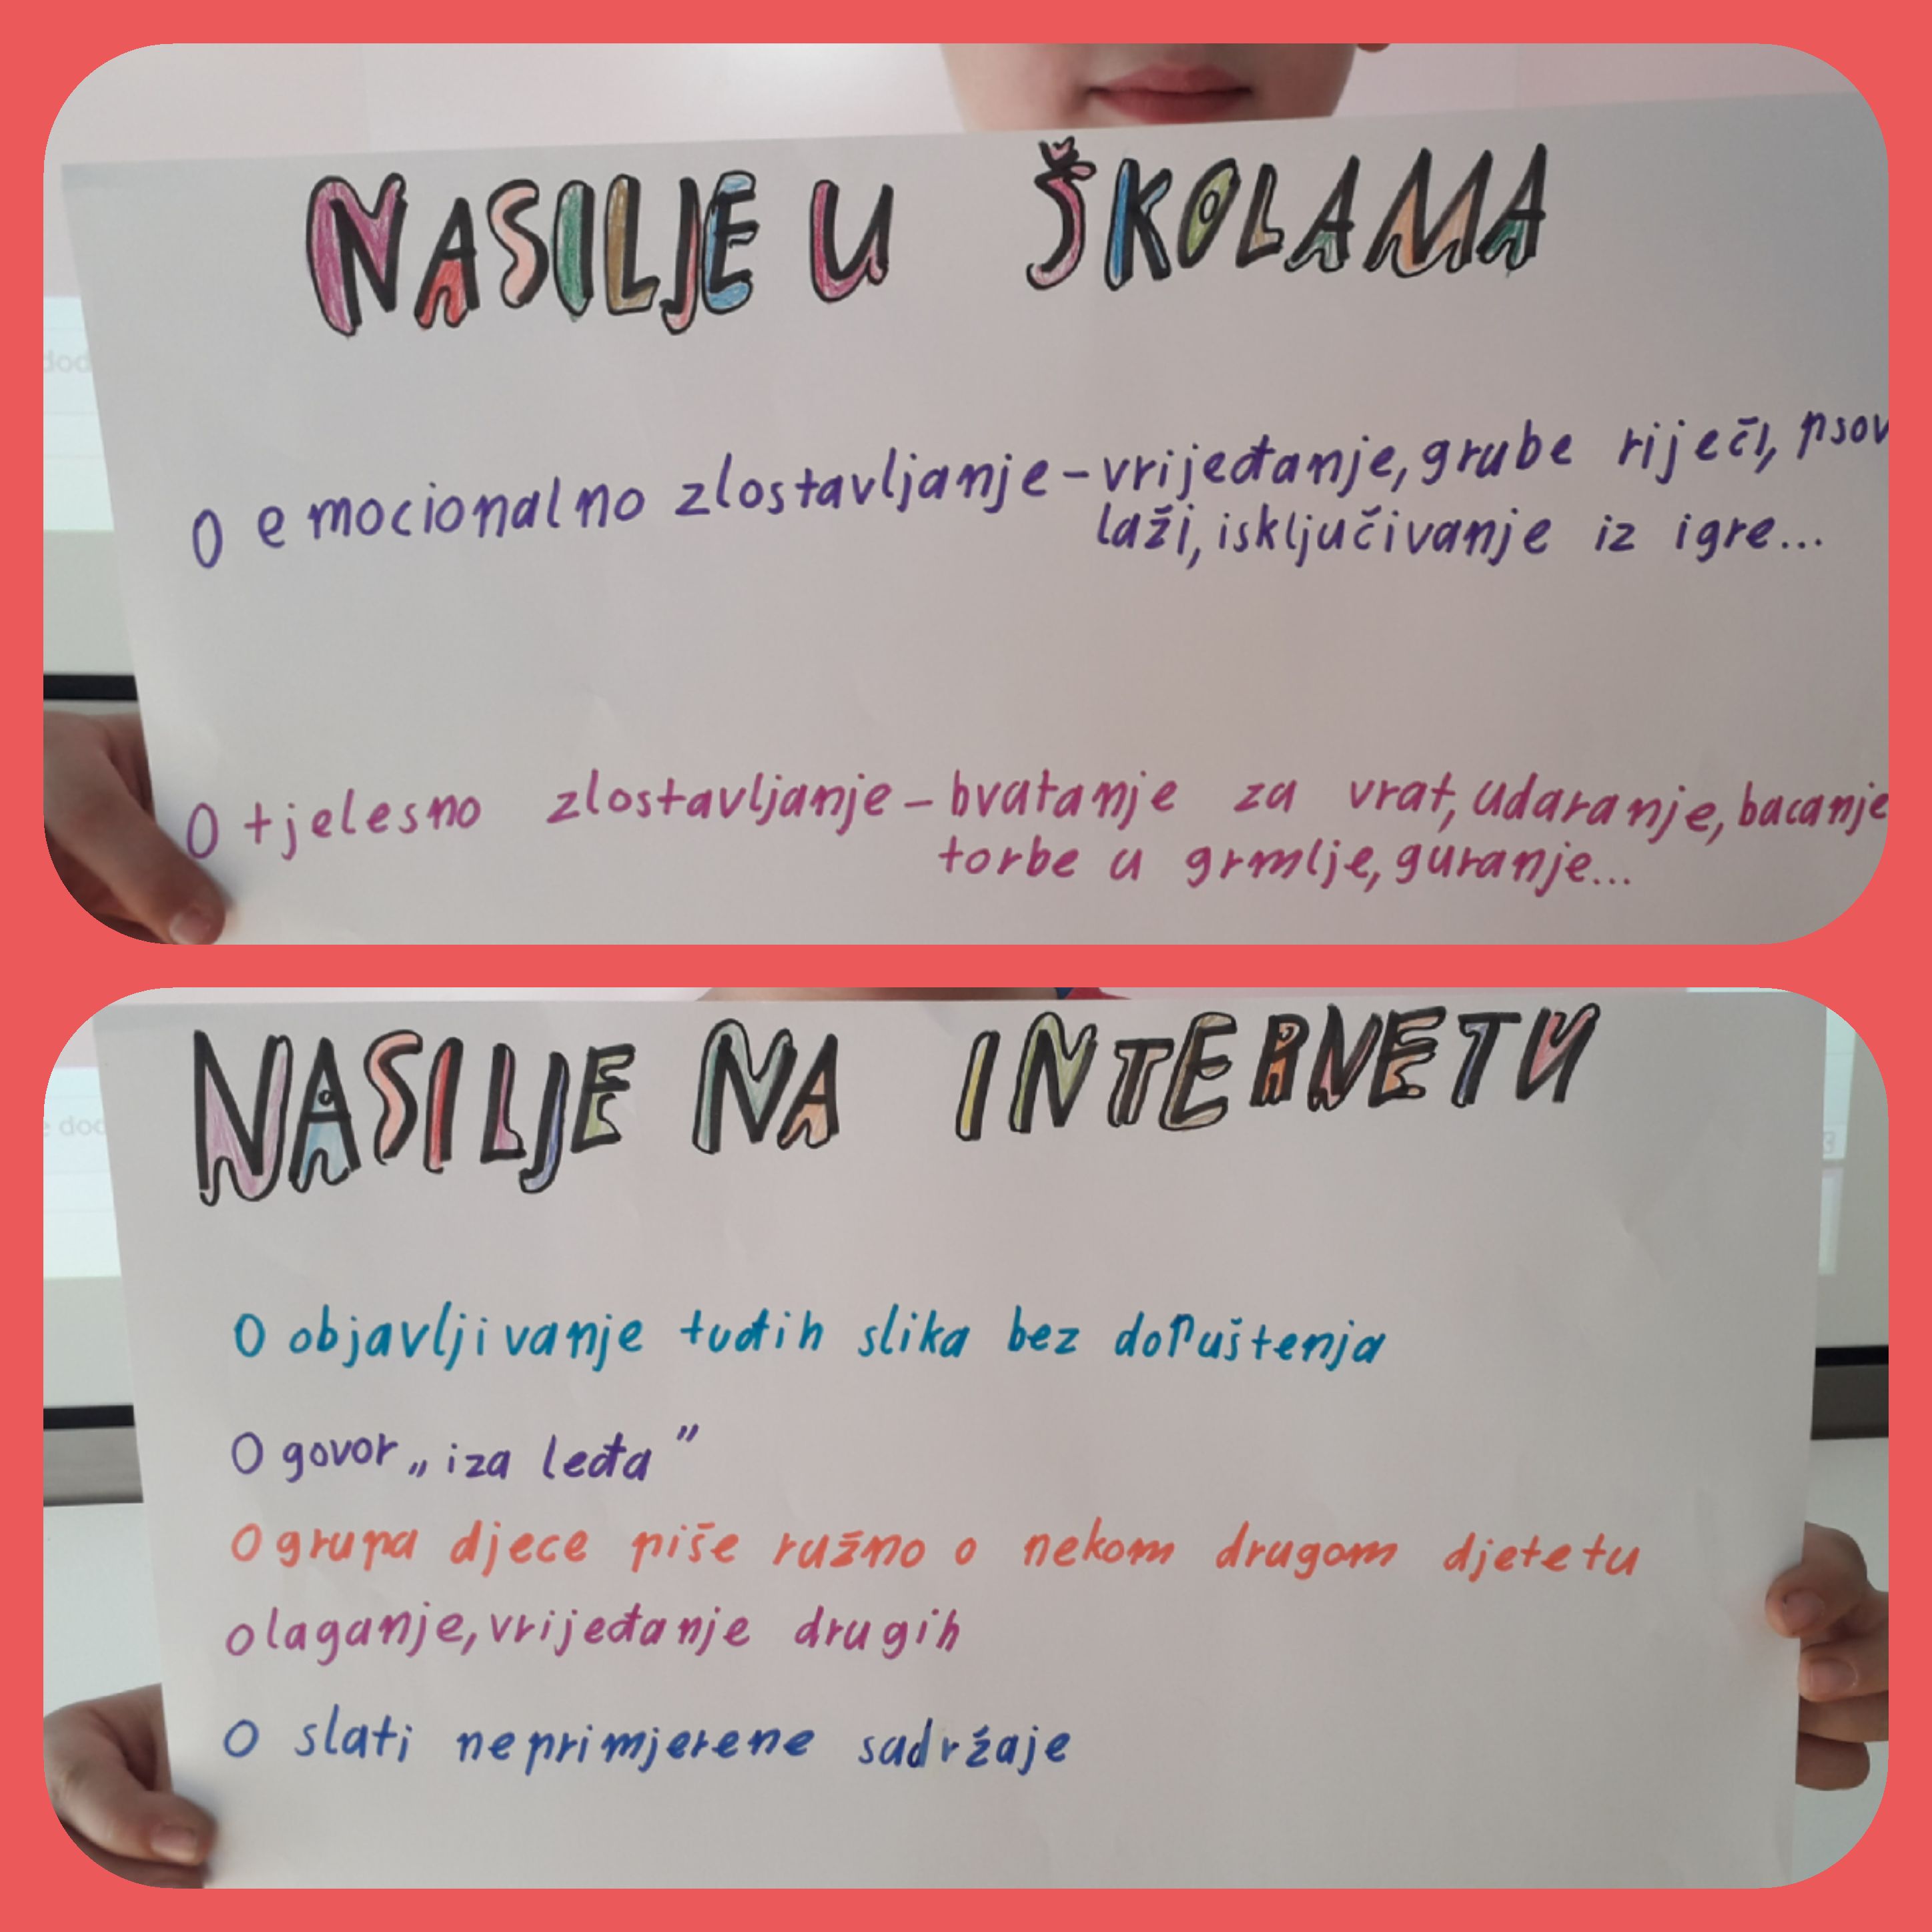 NASILJE U ŠKOLAMA
O emocionalno zlostavljanje - vrijeđanje, grube riječi, psov
laži, isključivanje iz igre...
O tjelesno zlostavljanje - hvatanje za vrat, udaranje, bacanje
torbe u grmlje, guranje...
NASILJE NA INTERNETU
O objavljivanje tuđih slika bez dopuštenja
O govor „iza leđa”
O grupa djece piše ružno o nekom drugom djetetu
O laganje, vrijeđanje drugih
O slati neprimjerene sadržaje